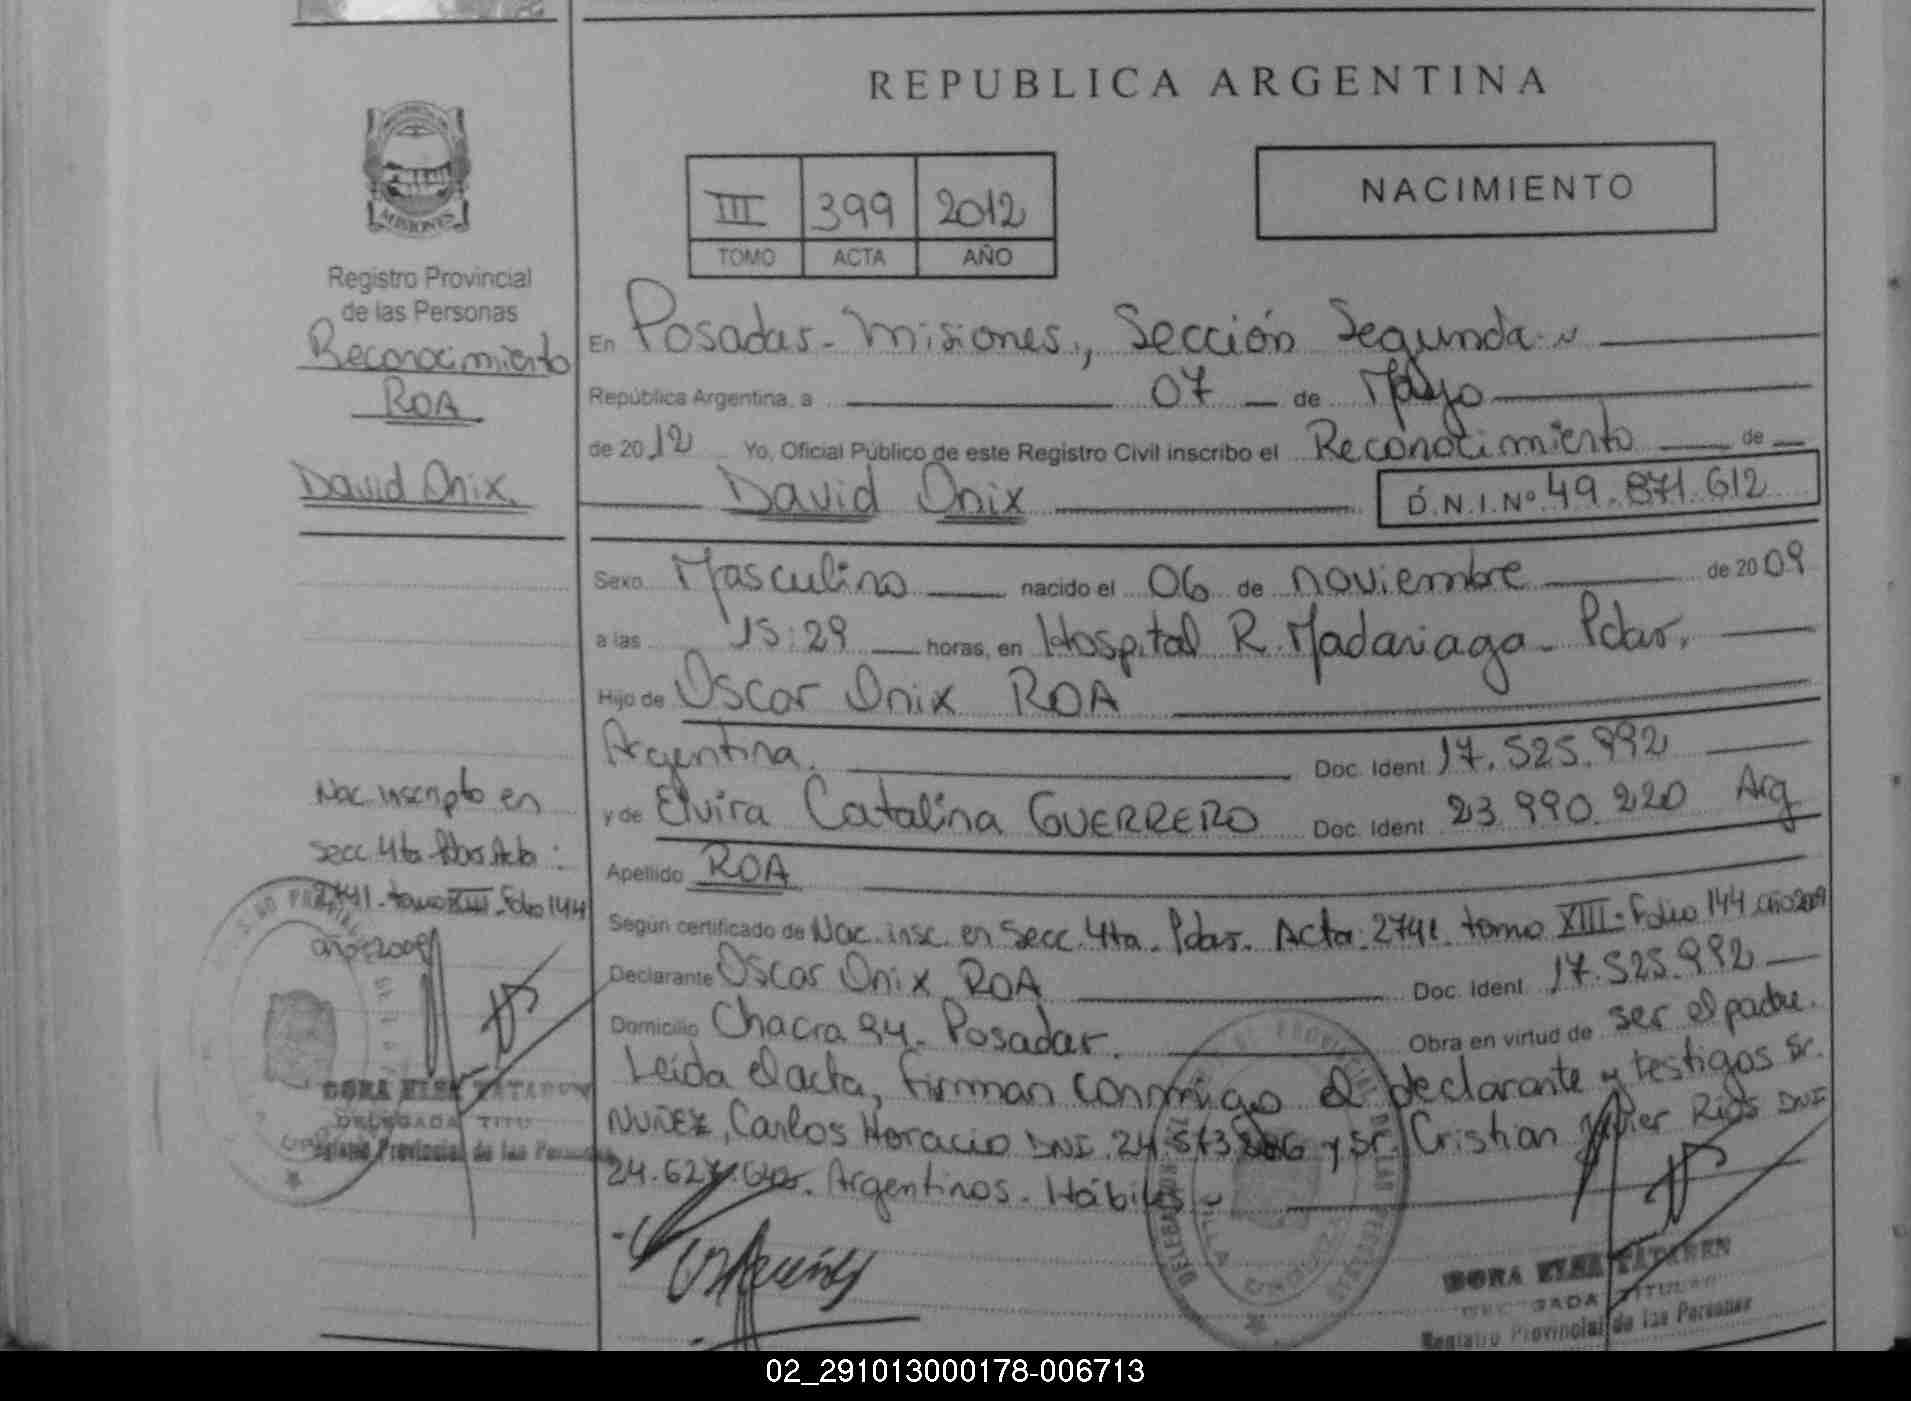 REPUBLICA ARGENTINA
MISIONES
Registro Provincial
de las Personas
Reconocimiento
ROA
David Onix.
III 399 2012
TOMO ACTA AÑO
NACIMIENTO
En Posadas - Misiones, Sección Segunda
República Argentina, a 07 de Mayo
de 2012 Yo, Oficial Público de este Registro Civil inscribo el Reconocimiento de
David Onix D.N.I.Nº 49.871.612
Sexo Masculino nacido el 06 de noviembre de 2009
a las 15:29 horas, en Hospital R. Madariaga - Pdas.
Hijo de Oscar Onix ROA
Argentina. Doc. Ident 17.525.992
y de Elvira Catalina GUERRERO Doc. Ident 23.990.220 Arg
Apellido ROA
Según certificado de Nac. insc. en Secc. 4ta. Pdas. Acta: 2741 tomo XIII - Folio 144 año 2009
Declarante Oscar Onix ROA Doc. Ident 17.525.992
Domicilio Chacra 94 - Posadas. Obra en virtud de ser el padre.
Leída el acta, firman conmigo el declarante y testigos Sr.
NUÑEZ, Carlos Horacio DNI. 24.573. y Sr. Cristian Javier Rios DNI
24.627. Argentinos. Hábiles
Nac. inscripto en
Secc. 4ta Pdas Acta:
2741 - tomo XIII - Folio 144
año: 2009
DORA ELSA
DELEGADA TITU
Registro Provincial de las Personas
DORA ELSA
DELEGADA TITULAR
Registro Provincial de las Personas
02_291013000178-006713